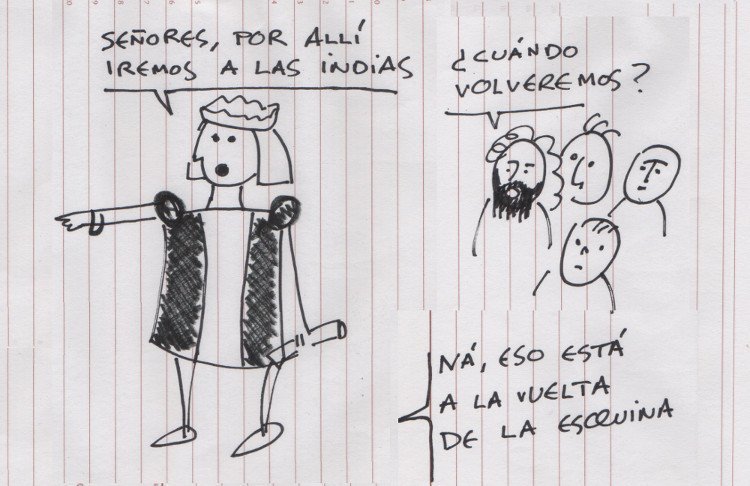 SEÑORES, POR ALLÍ
IREMOS A LAS INDIAS
¿CUÁNDO
VOLVEREMOS?
NÁ, ESO ESTÁ
A LA VUELTA
DE LA ESQUINA